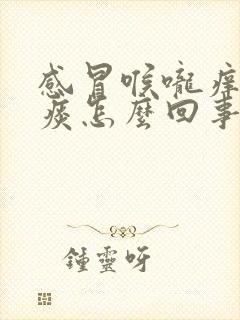 感冒喉嚨痒
痰怎麼回事
鍾靈呀